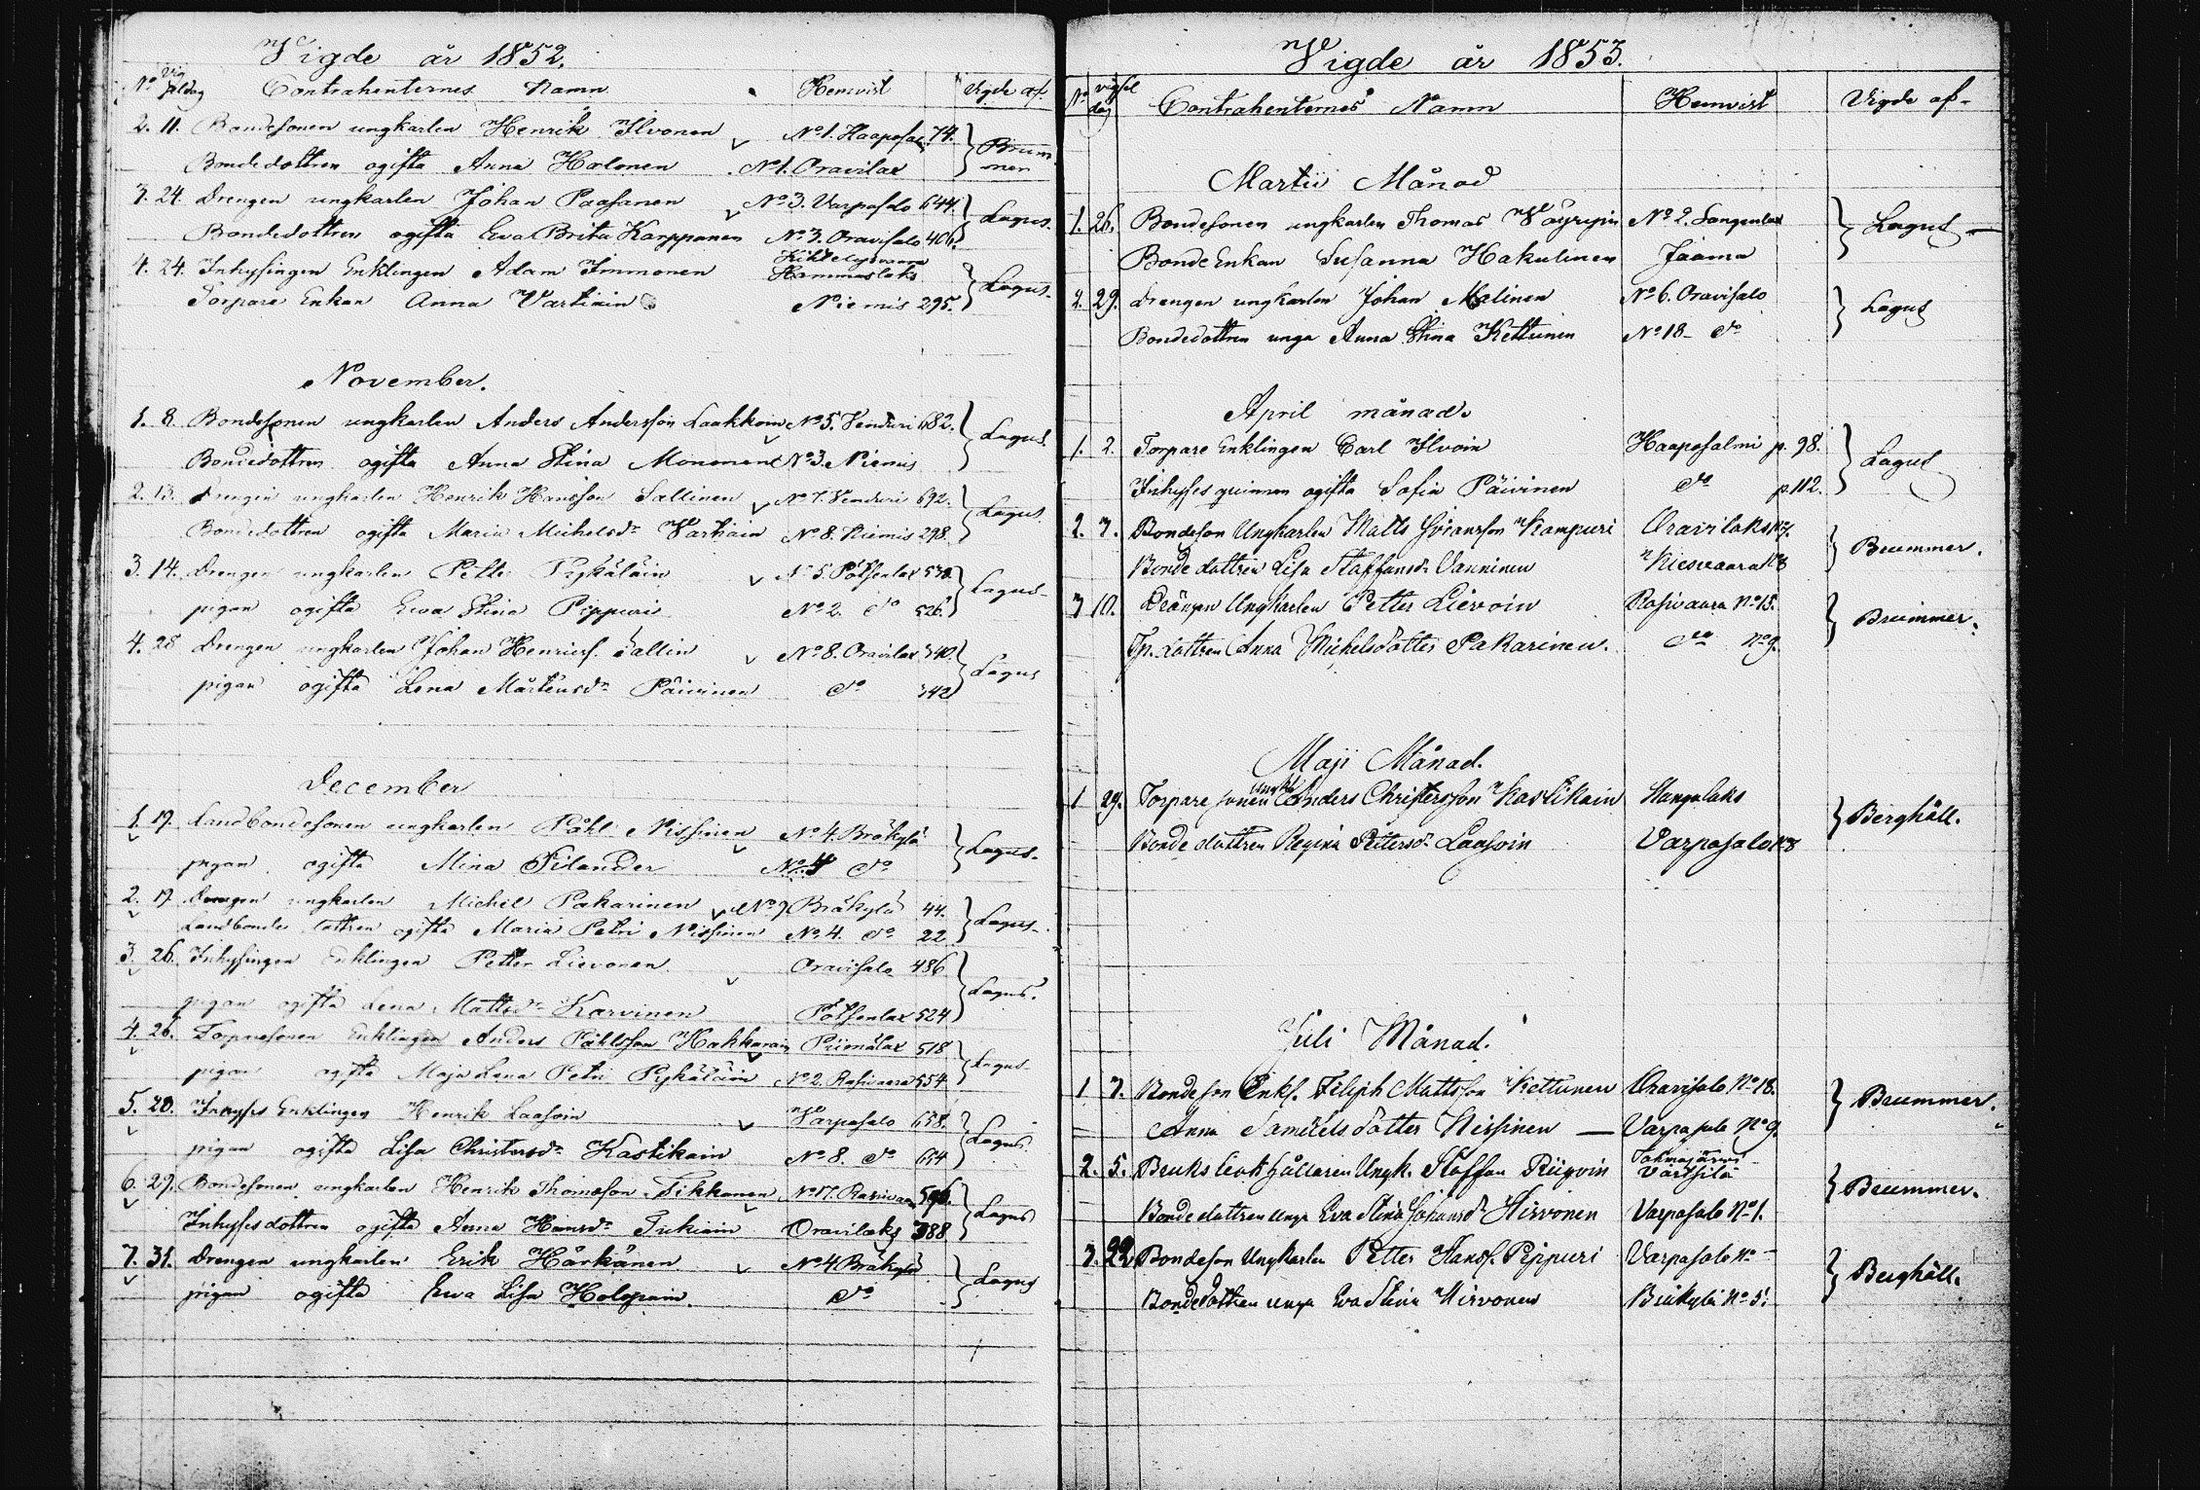 Vigde år 1852.
No Vigseldag Contrahenternes Namn Hemvist Vigde af.
2. 11. Bondesonen ungkarlen Henrik Ilvonen No 1. Haaposalmi 74. Brummer
Bondedottren ogifta Anna Halonen No 1. Oravilax
3. 24. Drengen ungkarlen Johan Paasanen No 3. Varpasalo 644. Lagus.
Bondedottren ogifta Eva Brita Karppanen No 3. Oravisalo 406.
4. 24. Inhysingen Enklingen Adam Immonen Hammaslaks Lagus.
Torpare Enkan Anna Vartiain Niemis 295.
November.
1. 8. Bondesonen ungkarlen Anders Andersson Laakkoin No 5. Venduri 682. Lagus
Bondedottren ogifta Anna Stina Mononen No 3. Niemis
2. 13. Drengen ungkarlen Henrik Hansson Sallinen No 7. Venduri 692. Lagus.
Bondedottren ogifta Maria Michelsdr Vartiain No 8. Niemis 298.
3. 14. Drengen ungkarlen Petter Pykäläin No 5. Pötsenlax 538. Lagus
pigan ogifta Ewa Stina Pippuri No 2. do 526.
4. 28 Drengen ungkarlen Johan Henrics. Sallin No 8. Oravilax 340. Lagus
pigan ogifta Lena Mårtensdr Päivinen do 342
December
1. 19. Landbondesonen ungkarlen Påhl Nissinen No 4. Bråkylä Lagus.
pigan ogifta Mina Filander No 4 do
2. 19 Drengen ungkarlen Michel Pakarinen No 7 Bråkylä 44. Lagus.
Landbonde dottren ogifta Maria Petri Nissinen No 4. do 22
3. 26. Inhysingen Enklingen Petter Lievonen Oravisalo 486 Lagus.
pigan ogifta Lena Mattsdr Karvinen Pötsenlax 524
4. 26. Torparesonen Enklingen Anders Påhlsson Hakkarain 518 Lagus
pigan ogifta Maja Lena Petri Pykäläin No 2. Rasivaara 554.
5. 20. Inhyses Enklingen Henrik Laasoin Varpasalo 658. Lagus
pigan ogifta Lisa Christersdr Kastikain No 8. do 654
6. 27. Bondesonen ungkarlen Henrik Thomasson Tikkanen No 17. Rasivaara Lagus
Inhysesdottren ogifta Anna Hansdr Tukiain Oravilaks 388
7. 31. Drengen ungkarlen Erik Härkänen No 4 Bråkylä Lagus
pigan ogifta Ewa Lisa Holopain. do
Vigde år 1853.
No vigsel dag Contrahenternes Namn Hemvist Vigde af
Martii Månad
1. 26. Bondesonen ungkarlen Thomas Väyrynin No 2. Sangenlax Lagus
Bonde Enkan Susanna Hakulinen Jaama
2. 29. Drengen ungkarlen Johan Malinen No 6. Oravisalo Lagus
Bondedottren unga Anna Stina Kettunin No 18 do
April månad.
1. 2. Torpare Enklingen Carl Ilvoin Haaposalmi p. 98. Lagus
Inhyses quinnan ogifta Sofia Päivinen do p. 112.
2. 7. Bondeson Ungkarlen Matts Göransson Kampuri Oravilaks No 7. Brummer.
Bonde dottren Lisa Staffansdr Vanninen Niesvaara No 3
3 10. Drängen Ungkarlen Petter Lievoin Rasivaara No 15. Brummer.
Tp. dottren Anna Michelsdotter Pakarinen. do No 9.
Maji Månad.
1 29. Torpare sonen ungk. Anders Christersson Kastikain Hangulaks Berghäll.
Bonde dottren Regina Pettersdr Laasoin Varpasalo No 8
Juli Månad.
1 7. Bondeson Enkl. Filiph Mattsson Kettunen Oravisalo No 18. Brummer.
Anna Samuelsdotter Nissinen — Varpasalo No 9.
2. 5. Bruks bokhållaren Ungk. Staffan Riigvin Tohmajärvi Värtsilä Brummer.
Bonde dottren unga Eva Stina Johansdr Hirvonen Varpasalo No 1.
3. 22 Bondeson Ungkarlen Petter Hanss. Pippuri Varpasalo No — Berghäll.
Bondedottren unga Eva Stina Hirvonen Bråkylä No 5.